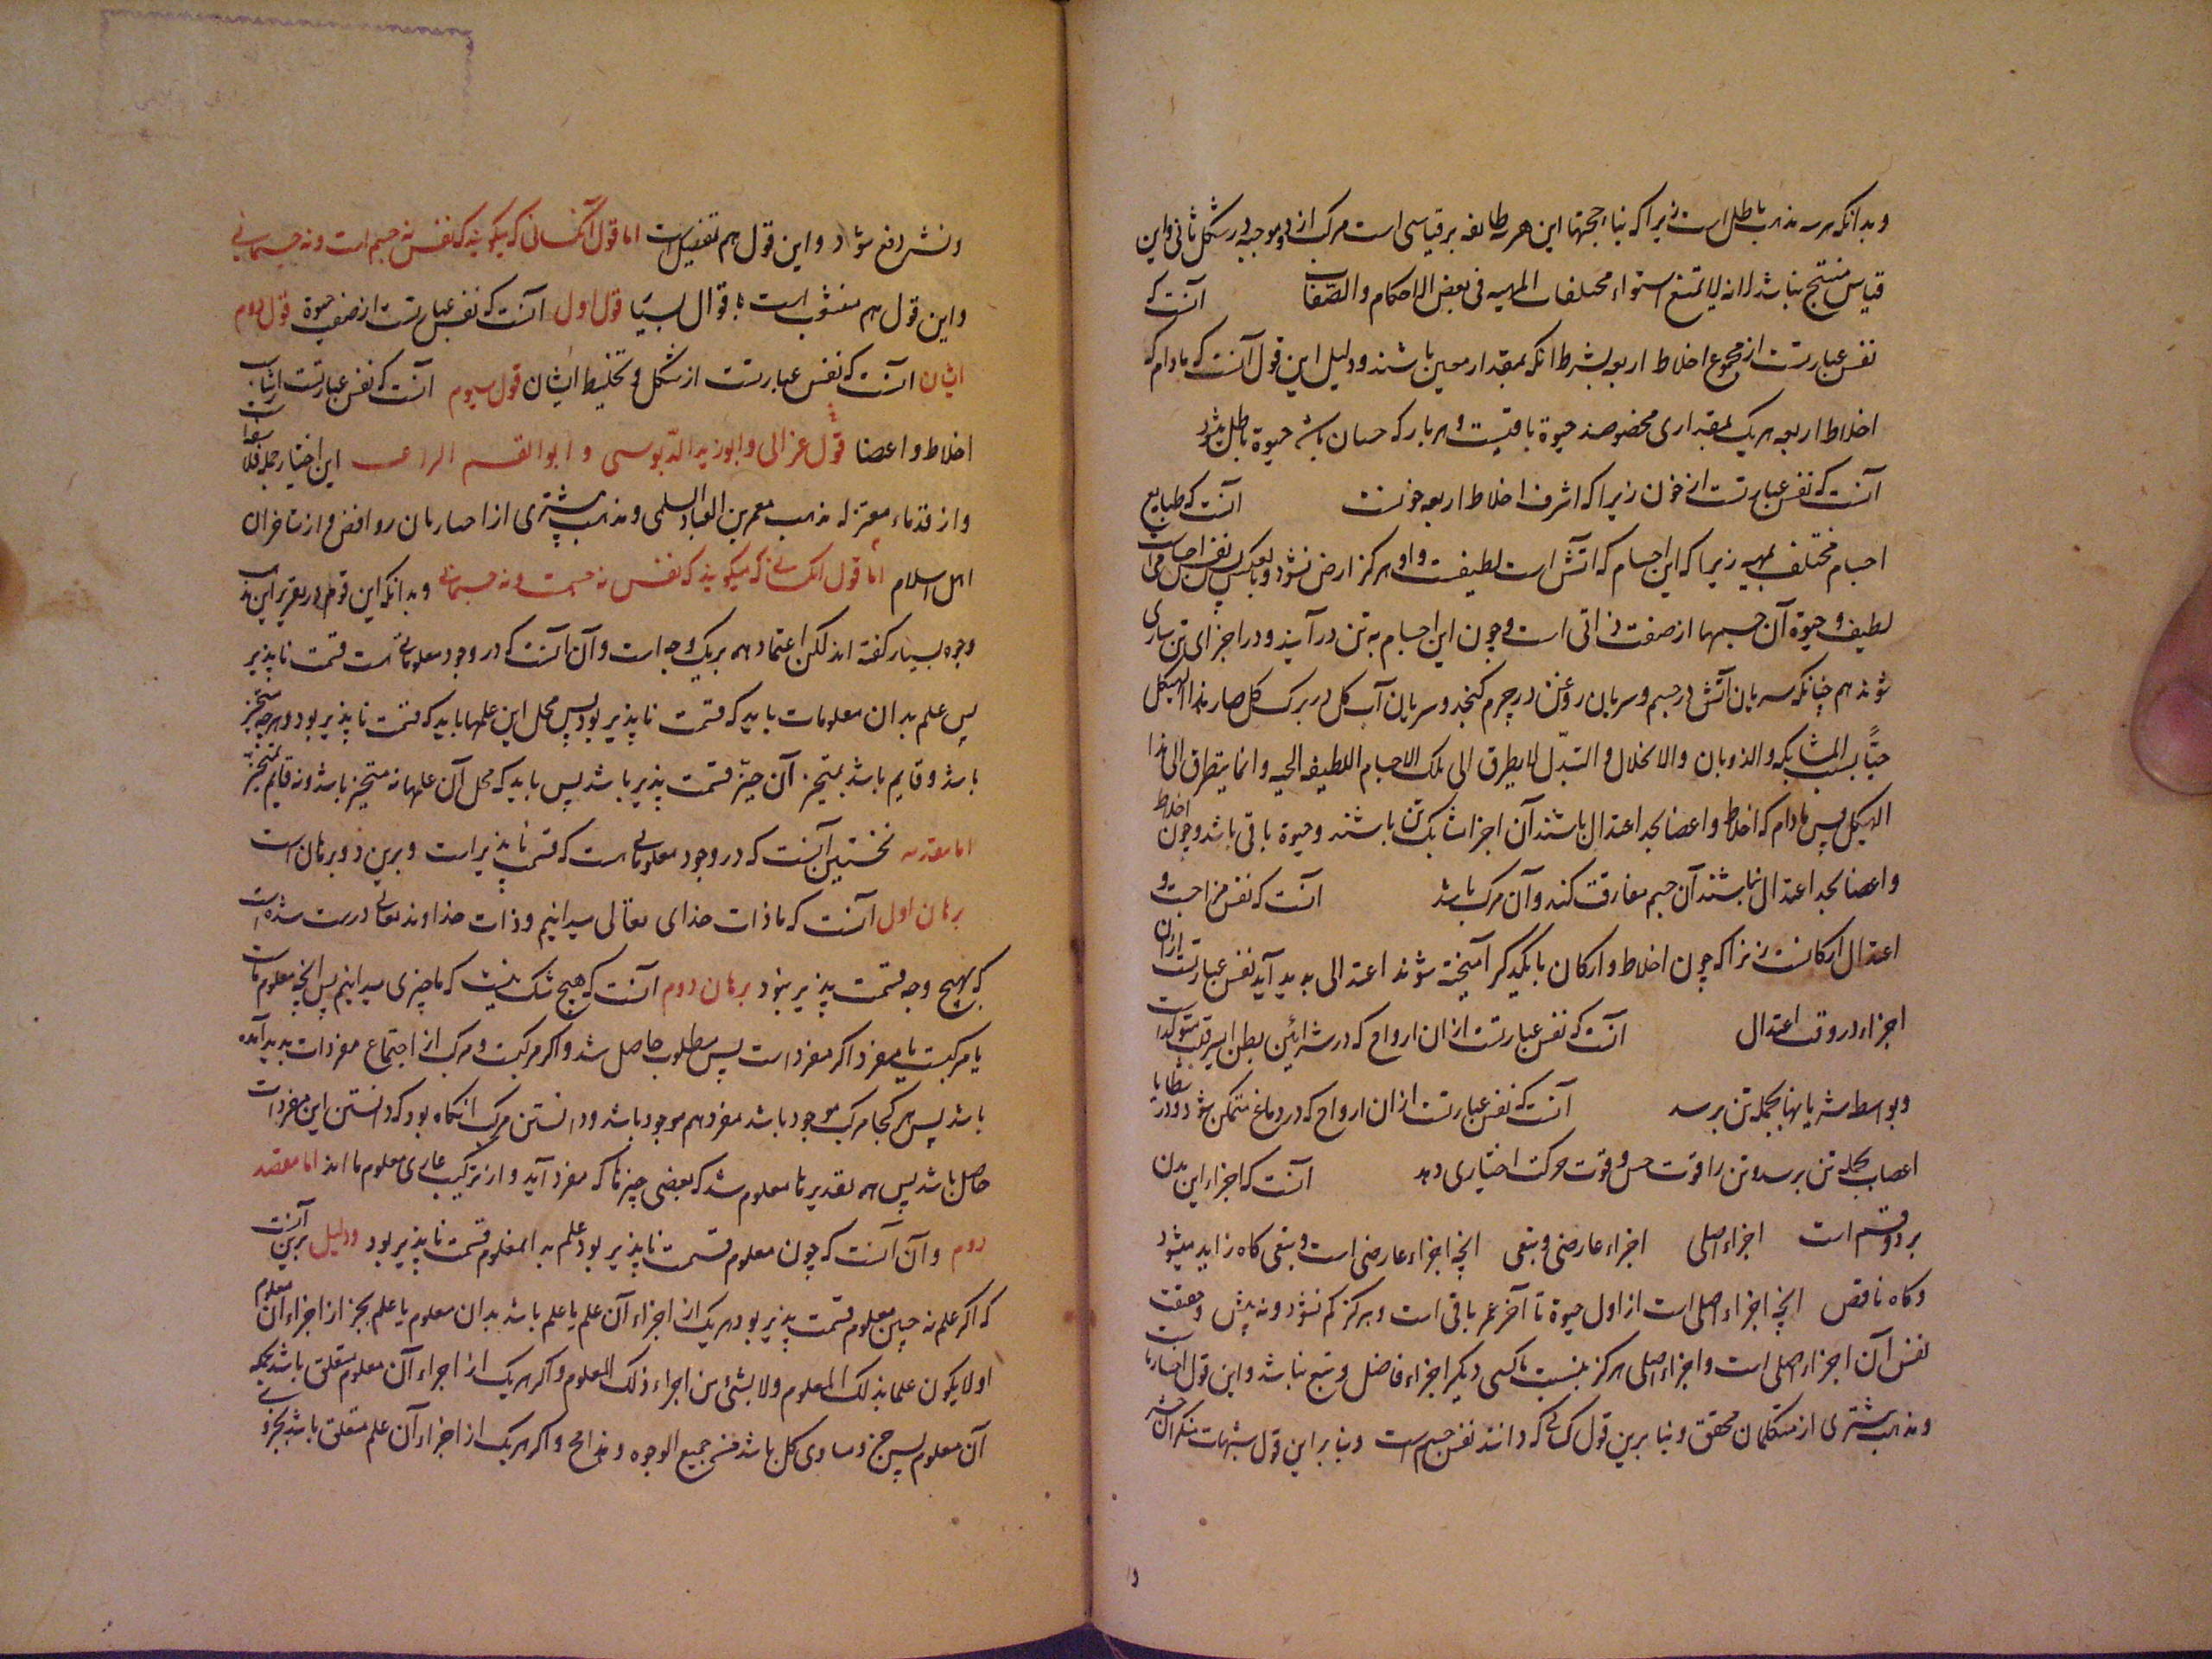 وبدانکه هر سه مذهب باطل است زیرا که بناء حجتهاء این هر سه طائفه بر قیاسی است مرکب از دو موجبه در شکل ثانی و این
قیاس منتج نباشد لانه لا یمتنع استواء مختلفات المهیه فی بعض الاحکام والصفات آنست که
نفس عبارتست از مجموع اخلاط اربعه بشرط انکه بمقدار معین باشند ودلیل این قول آنست که مادام که
اخلاط اربعه هریک بمقداری مخصوصند حیوة باقیست وهربار که باشد حیوة باطل شود
آنست که نفس عبارتست از خون زیرا که اشرف اخلاط اربعه خونست آنست که طبایع
اجسام مختلف بمهیه زیرا که این اجسام که آتش است لطیفست واو هرکز ارض نشود وبالعکس پس نفس اجسامی
لطیف وحیوة آن جسمها از صفت ذاتی است وچون این اجسام به تن درآیند ودر اجزای تن ساری
شوند هم چنانکه سریان آتش در جسم وسریان روغن در جرم کنجد وسریان آب کل در برک کل صار هذا الهیکل
حیّاً بسبب المشابکه والذوبان والانحلال والتبدّل لایطرق الی تلک الاجسام اللطیفه الحیه وانما یتطرق الی هذا
الهیکل پس مادام که اخلاط واعضا بحد اعتدال باشند آن اجزا شابک تن باشند وحیوة باقی باشد وچون اخلاط
واعضا بحد اعتدال نباشند آن جسم مفارقت کند وآن مرک باشد آنست که نفس مزاجست و
اعتدال ارکانست زیرا که چون اخلاط وارکان با یکدیکر آمیخته شوند اعتدالی بدید آید نفس عبارتست از ان
اجزاء در وقت اعتدال آنست که نفس عبارتست از ان ارواح که در شرائین بطن ایسر قلب متولد است
وبواسطه شریانها بجمله تن برسد آنست که نفس عبارتست از ان ارواح که در دماغ متمکن شود ودر شظایا
اعصاب بجمله تن برسد وتن را قوت حس وقوت حرکت اختیاری دهد آنست که اجزاء این بدن
بر دو قسم است اجزاء اصلی اجزاء عارضی وتبعی انچه اجزاء عارضی است وتبعی کاه زاید میشود
وکاه ناقص انچه اجزاء اصلی است از اول حیوة تا آخر عمر باقی است وهرکز کم نشود ونه بیش وحقیقت
نفس آن اجزاء اصلی است واجزاء اصلی هرکز بنسبت با کسی دیکر اجزاء فاضل وتبع نباشد واین قول اختیار ما است
ومذهب بیشتری از متکلمان محقق وبنا برین قول کسانی که دانند نفس جسم است وبنا بر این قول شبهات منکران حشر
ونشر دفع شود واین قول هم تفصیل است اما قول آنکسانی که میکویند که نفس نه جسم است ونه جسمانی
واین قول هم منشوب است باقوال بسیا قول اول آنست که نفس عبارتست از صفت حیوة قول دوم
ایشان آنست که نفس عبارتست از شکل وتخلیط ایشان قول سیوم آنست که نفس عبارتست از تناسب
اخلاط واعضا قول غزالی وابوزید الدّبوسی وابوالقسم الراغب این اختیار جمله فلاسفه است
واز قدماء معتزله مذهب معمر بن العباد السلمی ومذهب بیشتری از روافض واز متاخران
اهل اسلام اما قول آنکسانی که میکویند که نفس نه جسمست ونه جسمانی وبدانکه این قوم در تقریر این مذهب
وجوه بسیار کفته اند لکن اعتماد همه بر یک وجه است وآن آنست که در وجود معلوماتی است قسمت ناپذیر
پس علم بدان معلومات باید که قسمت ناپذیر بود پس محل این علمها باید که قسمت ناپذیر بود وهرچه متحیز
باشد وقایم باشد بمتحیز آن چیز قسمت پذیر باشد پس باید که محل آن علمها نه متحیز باشد ونه قایم بمتحیز
اما مقدمه نخستین آنست که در وجود معلوماتی است که قسمت ناپذیر است وبرین دو برهان است
برهان اول آنست که ما ذات خدای تعالی میدانیم وذات خداوند تعالی درست شده است
که بهیچ وجه قسمت پذیر نبود برهان دوم آنست که هیچ شک نیست که ما چیزی میدانیم پس انچه معلوم ماست
یا مرکبست یا مفرد اکر مفرد است پس مطلوب حاصل شد واکر مرکبست ومرکب از اجتماع مفردات بدید آمده
باشد پس هرکجا مرکب موجود باشد مفرد هم موجود باشد ودانستن مرکب آنکاه بود که دانستن این مفردات
حاصل باشد پس بهمه تقدیرها معلوم شد که بعضی چیزها که مفرد آید واز ترکیب عاری معلوم ما اند اما مقصد
دوم وآن آنست که چون معلوم قسمت ناپذیر بود علم بدان معلوم قسمت ناپذیر بود ودلیل برین آنست
که اکر علم نه چنین معلوم قسمت پذیر بود هریک از اجزاء آن علم یا علم باشد بدان معلوم یا علم بجزء از اجزاء آن معلوم
اولا یکون علما بذلک المعلوم ولا بشئ من اجزاء ذلک المعلوم واکر هریک از اجزاء آن معلوم متعلق باشد بجمله
آن معلوم پس جزو مساوی کل باشد من جمیع الوجوه وهذا مح واکر هریک از اجزاء آن علم متعلق باشد بجزوی